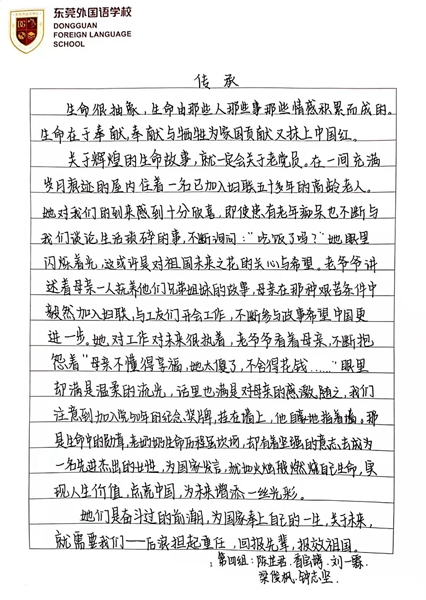 东莞外国语学校
DONGGUAN
FOREIGN LANGUAGE
SCHOOL
传承
生命很抽象，生命由那些人那些事那些情感积累而成的。
生命在于奉献，奉献与牺牲为家国贡献又抹上中国红。
关于辉煌的生命故事，就一定会关于老党员。在一间充满
岁月痕迹的屋内住着一名已加入妇联五十多年的高龄老人。
她对我们的到来感到十分欣喜，即使患有老年痴呆也不断与
我们谈论生活琐碎的事，不断询问："吃饭了吗？"她眼里
闪烁着光，这或许是对祖国未来之花的关心与希望。老爷爷讲
述着母亲一人抚养他们兄弟姐妹的故事，母亲在那种艰苦条件中
毅然加入妇联，与工友们开会工作，不断参与政事希望中国更
进一步。她，对工作对未来很执着，老爷爷看着母亲，不断抱
怨着"母亲不懂得享福，她太傻了，不舍得花钱……"眼里
却满是温柔的流光，话里也满是对母亲的感激。随之，我们
注意到加入党50年的纪念奖牌，挂在墙上，他自豪地指着墙。那
是生命中的勋章，老奶奶生命历程虽坎坷，却有着坚强的意志去成为
一名先进杰出的女性，为国家发言，就如火烛般燃烧自己生命，实
现人生价值，点亮中国，为未来增添一丝光彩。
她们是奋斗过的前潮，为国家奉上自己的一生，关于未来，
就需要我们——后浪担起重任，回报先辈，报效祖国。
第四组：陈芷君 刘一霖
梁俊枫 钟志坚